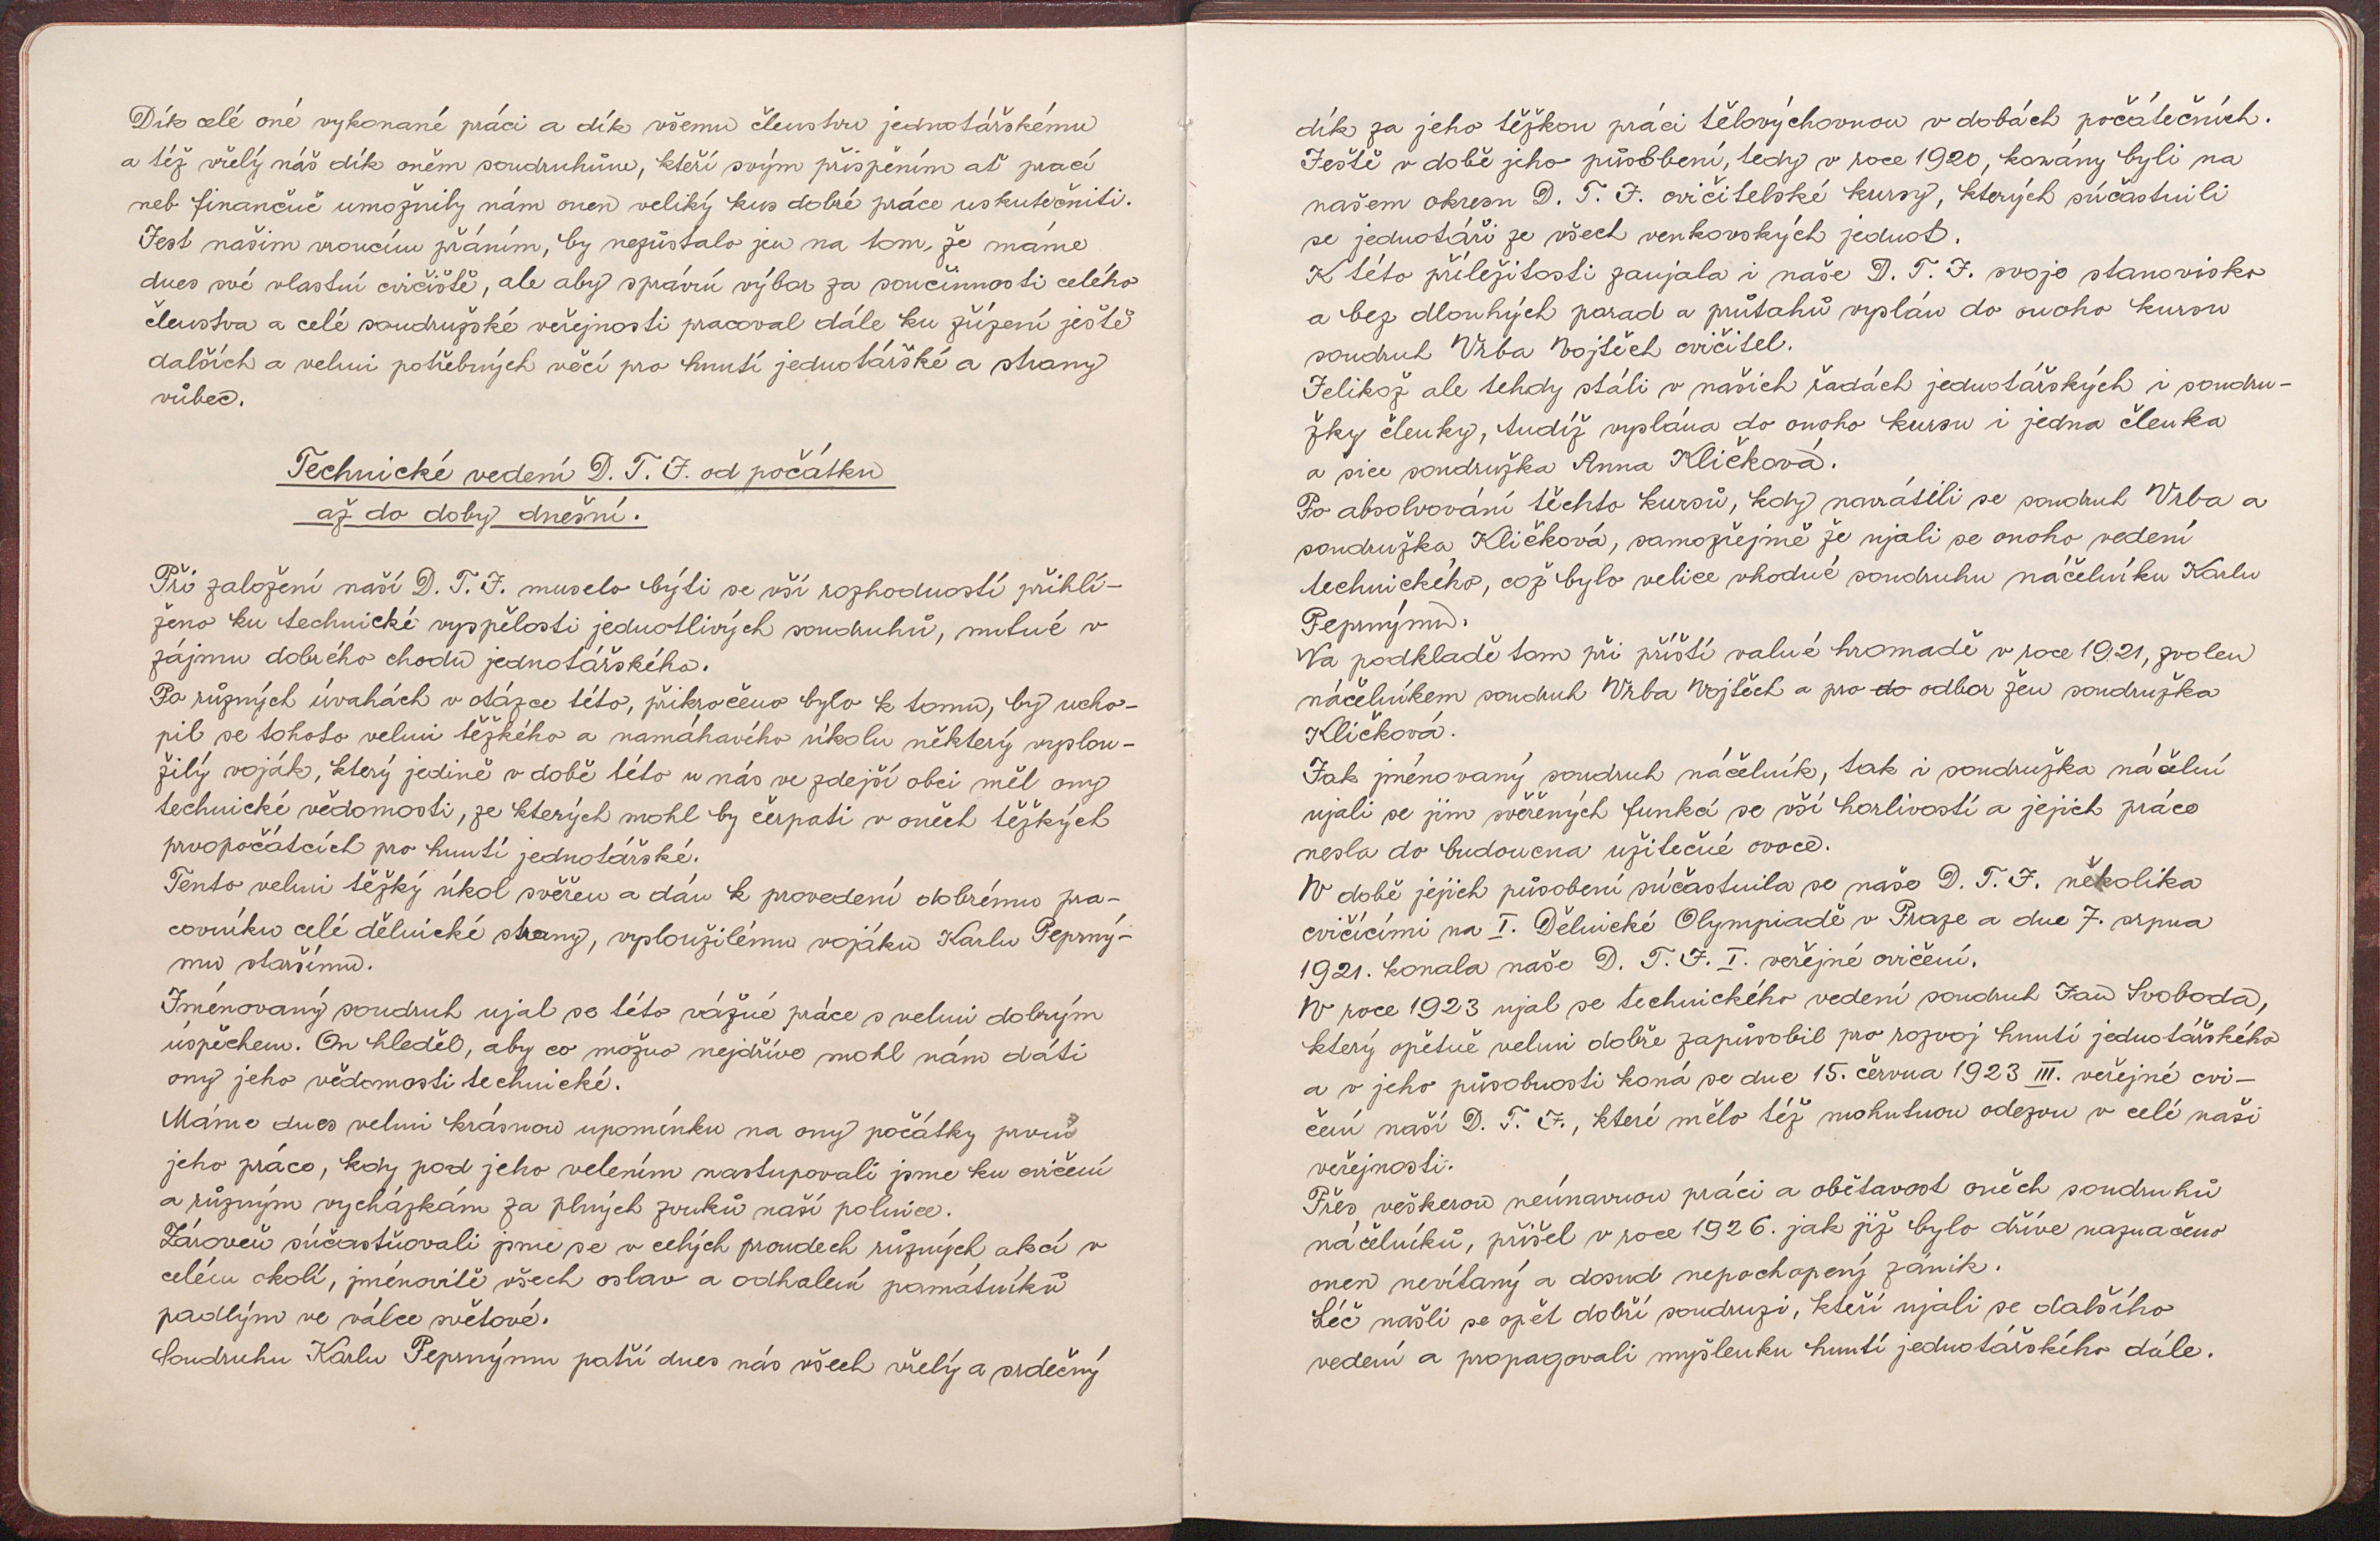 Dík celé oné vykonané práci a dík všemu členstvu jednotářskému
a též vřelý náš dík oněm soudruhům, kteří svým přispěním ať prací
neb finančně umožnily nám onen veliký kus dobré práce uskutečniti.
Jest našim vroucím přáním, by nezůstalo jen na tom, že máme
dnes své vlastní cvičiště, ale aby správní výbor za součinnosti celého
členstva a celé soudružské veřejnosti pracoval dále ku zřízení ještě
dalších a velmi potřebných věcí pro hnutí jednotářské a strany
vůbec.
Technické vedení D. T. J. od počátku
až do doby dnešní.
Při založení naší D. T. J. muselo býti se vší rozhodností přihlí-
ženo ku technické vyspělosti jednotlivých soudruhů, nutné v
zájmu dobrého chodu jednotářského.
Po různých úvahách v otázce této, přikročeno bylo k tomu, by ucho-
pil se tohoto velmi těžkého a namáhavého úkolu některý vyslou-
žilý voják, který jedině v době této u nás ve zdejší obci měl ony
technické vědomosti, ze kterých mohl by čerpati v oněch těžkých
prvopočátcích pro hnutí jednotářské.
Tento velmi těžký úkol svěřen a dán k provedení dobrému pra-
covníku celé dělnické strany, vysloužilému vojáku Karlu Peprný-
mu staršímu.
Jmenovaný soudruh ujal se této vážné práce s velmi dobrým
úspěchem. On hleděl, aby co možno nejdříve mohl nám dáti
ony jeho vědomosti technické.
Máme dnes velmi krásnou upomínku na ony počátky prvně
jeho práce, kdy pod jeho velením nastupovali jsme ku cvičení
a různým vycházkám za plných zvuků naší polnice.
Zároveň súčastňovali jsme se v celých proudech různých akcí v
celém okolí, jménovitě všech oslav a odhalení památníků
padlým ve válce světové.
Soudruhu Karlu Peprnýmu patří dnes nás všech vřelý a srdečný
dík za jeho těžkou práci tělovýchovnou v dobách počátečních.
Ještě v době jeho působení, tedy v roce 1920, konány byli na
našem okresu D. T. J. cvičitelské kursy, kterých súčastnili
se jednotáři ze všech venkovských jednot.
K této příležitosti zaujala i naše D. T. J. svoje stanovisko
a bez dlouhých porad a průtahů vyslán do onoho kursu
soudruh Vrba Vojtěch cvičitel.
Jelikož ale tehdy stáli v našich řadách jednotářských i soudru-
žky členky, tudíž vyslána do onoho kursu i jedna členka
a sice soudružka Anna Kličková.
Po absolvování těchto kursů, kdy navrátili se soudruh Vrba a
soudružka Kličková, samozřejmě že ujali se onoho vedení
technického, což bylo velice vhodné soudruhu náčelníku Karlu
Peprnýmu.
Na podkladě tom při příští valné hromadě v roce 1921, zvolen
náčelníkem soudruh Vrba Vojtěch a pro do odbor žen soudružka
Kličková.
Jak jménovaný soudruh náčelník, tak i soudružka náčelní
ujali se jim svěřených funkcí se vší horlivostí a jejich práce
nesla do budoucna užitečné ovoce.
V době jejich působení súčastnila se naše D. T. J. několika
cvičícími na I. Dělnické Olympiadě v Praze a dne 7. srpna
1921. konala naše D. T. J. I. veřejné cvičení.
V roce 1923 ujal se technického vedení soudruh Jan Svoboda,
který opětně velmi dobře zapůsobil pro rozvoj hnutí jednotářského
a v jeho působnosti koná se dne 15. června 1923 III. veřejné cvi-
čení naší D. T. J., které mělo též mohutnou odezvu v celé naši
veřejnosti.
Přes veškerou neúnavnou práci a obětavost oněch soudruhů
náčelníků, přišel v roce 1926. jak již bylo dříve naznačeno
onen nevítaný a dosud nepochopený zánik.
Léč našli se opět dobří soudruzi, kteří ujali se dalšího
vedení a propagovali myšlenku hnutí jednotářského dále.